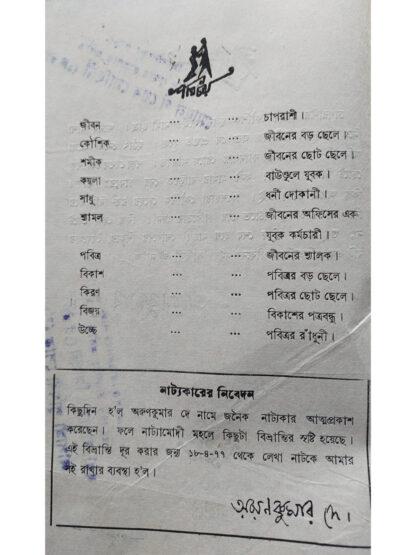 পরিচয়
জীবন ... ... চাপরাশী।
কৌশিক ... ... জীবনের বড় ছেলে।
শমীক ... ... জীবনের ছোট ছেলে।
কয়লা ... ... বাউণ্ডুলে যুবক।
সাধু ... ... ধনী দোকানী।
শ্যামল ... ... জীবনের অফিসের এক
যুবক কর্মচারী।
পবিত্র ... ... জীবনের শ্যালক।
বিকাশ ... ... পবিত্রর বড় ছেলে।
কিরণ ... ... পবিত্রর ছোট ছেলে।
বিজয় ... ... বিকাশের পত্রবন্ধু।
উচ্ছে ... ... পবিত্রর রাঁধুনী।
নাট্যকারের নিবেদন
কিছুদিন হ'ল অরুণকুমার দে নামে জনৈক নাট্যকার আত্মপ্রকাশ
করেছেন। ফলে নাট্যামোদী মহলে কিছুটা বিভ্রান্তির সৃষ্টি হয়েছে।
এই বিভ্রান্তি দূর করার জন্য ১৮-৪-৭৭ থেকে লেখা নাটকে আমার
সই রাখার ব্যবস্থা হ'ল।
অরুণকুমার দে।